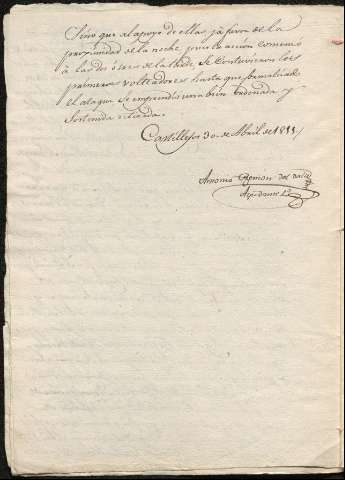 sino que al apoyo de ellas, y á favor de la
proximidad de la noche, pues la accion comenzó
á las dos ó tres de la tarde, se contuvieron los
primeros volteadores, hasta que formalizado
el ataque se emprendió una bien ordenada y
sostenida retirada.
Castillejos 30 de Abril de 1811
Antonio Remon del Valle
Ayudante